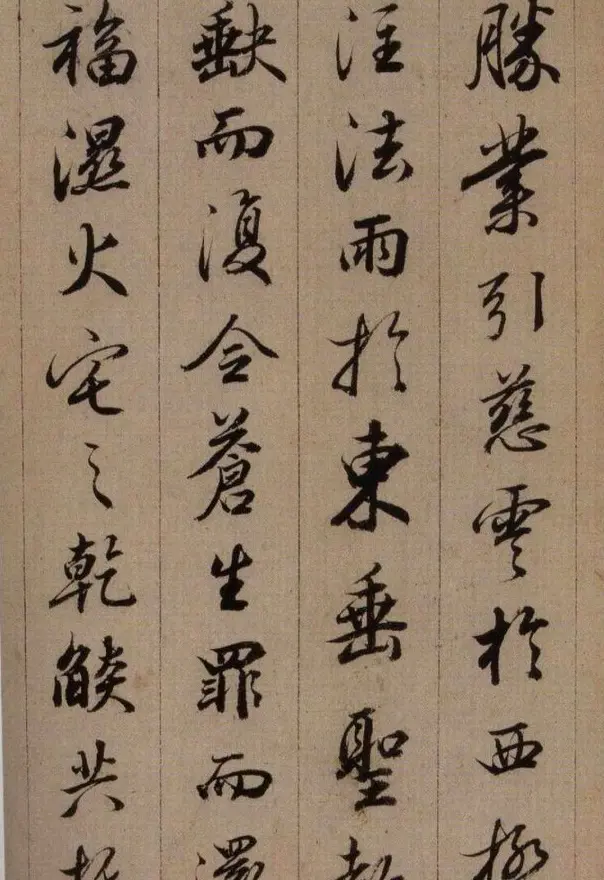 勝業引慈雲於西極
注法雨於東垂聖教
缺而復令蒼生罪而還
福濕火宅之乾焰共拔